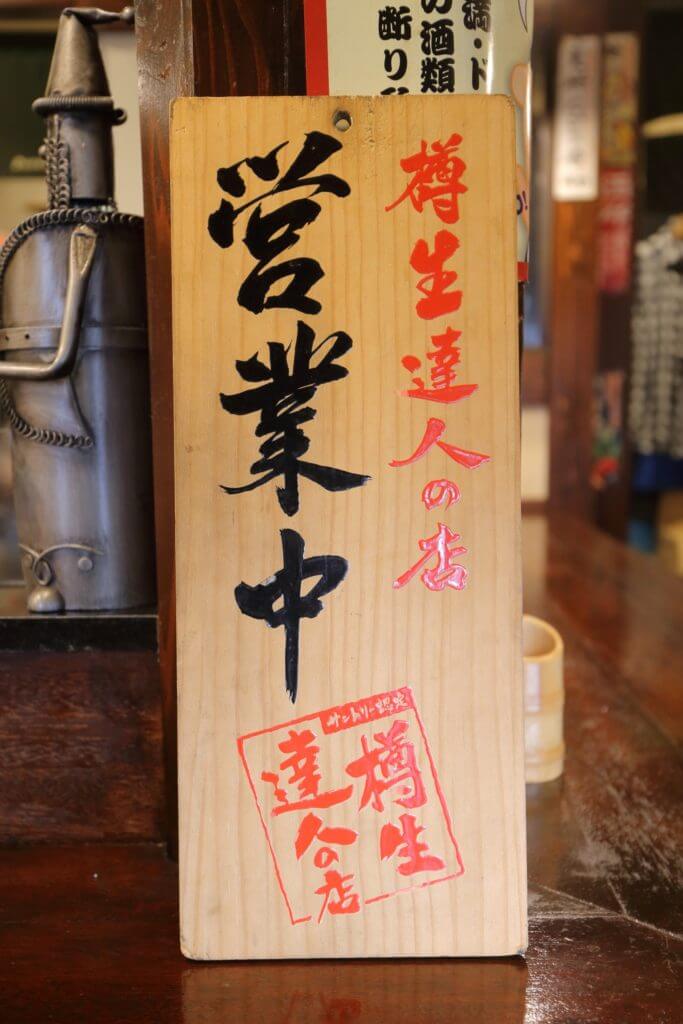 樽生達人の店
営業中
サントリー認定
樽生
達人の店
満・ド
の酒類
断り